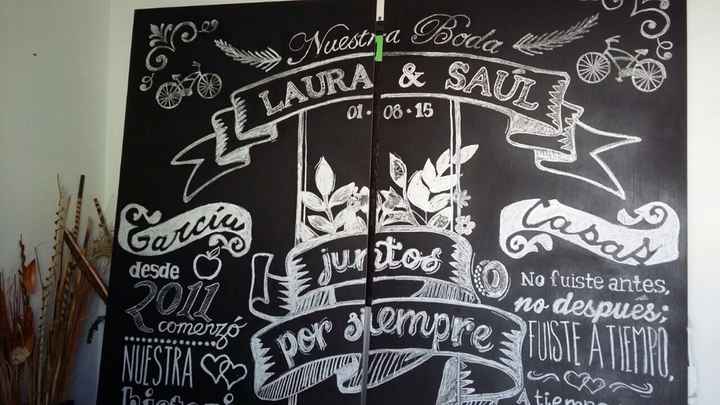 Nuestra Boda
LAURA & SAÚL
01·08·15
García
Casas
juntos
por siempre
desde
2011
comenzó
NUESTRA
histori
No fuiste antes,
no después;
FUISTE A TIEMPO,
A tiemp